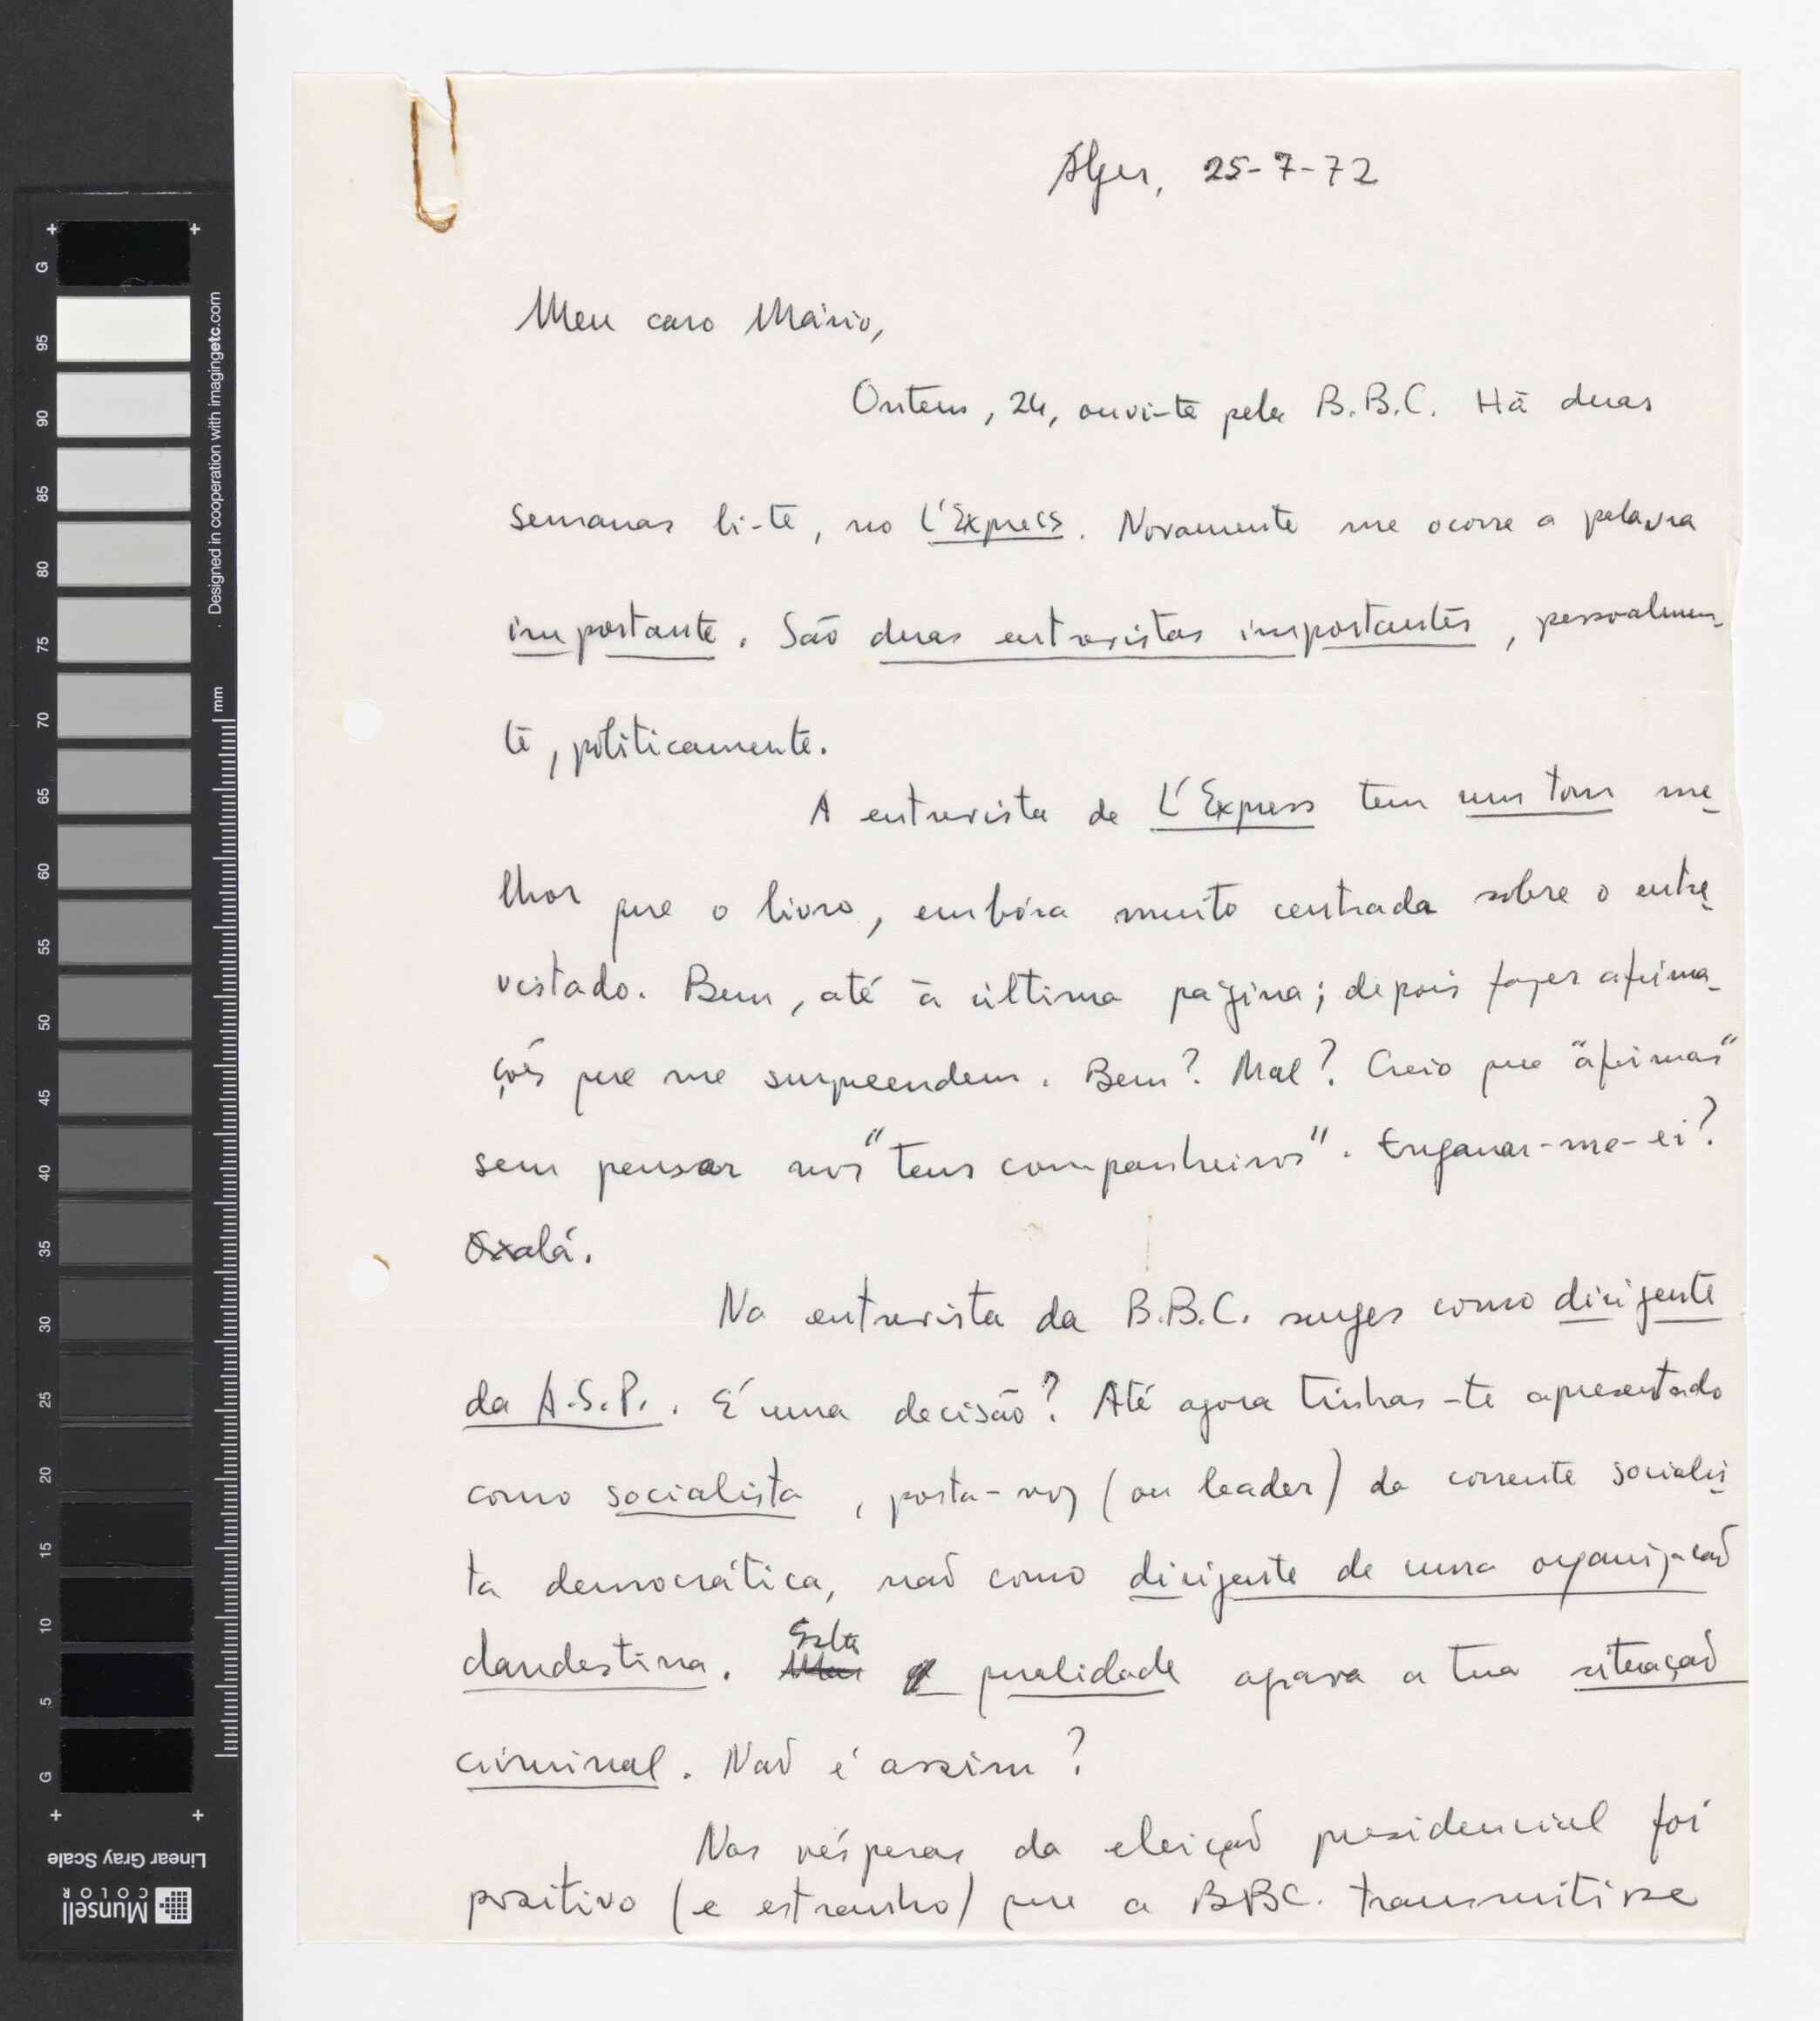 Alger, 25-7-72
Meu caro Mário,
Ontem, 24, ouvi-te pela B.B.C. Há duas
semanas li-te, no L'Express. Novamente me ocorre a palavra
importante. São duas entrevistas importantes, pessoalmen-
te, politicamente.
A entrevista de L'Express tem um tom me-
lhor que o livro, embóra muito centrada sobre o entre-
vistado. Bem, até à última página; depois fazes afirma-
ções que me surpreendem. Bem? Mal? Creio que "afirmas"
sem pensar nos "teus companheiros". Enganar-me-ei?
Oxalá.
Na entrevista da B.B.C. surges como dirigente
da A.S.P.. É uma decisão? Até agora tinhas-te apresentado
como socialista, porta-voz (ou leader) da corrente socialis-
ta democrática, não como dirigente de uma organização
clandestina. Esta qualidade agrava a tua situação
criminal. Não é assim?
Nas vésperas da eleição presidencial foi
positivo (e estranho) que a BBC. transmitisse
G 95 90 85 80 75 70 65 60 55 50 45 40 35 30 25 20 15 10 5 G
Designed in cooperation with imagingetc.com
mm
Linear Gray Scale
Munsell
COLOR